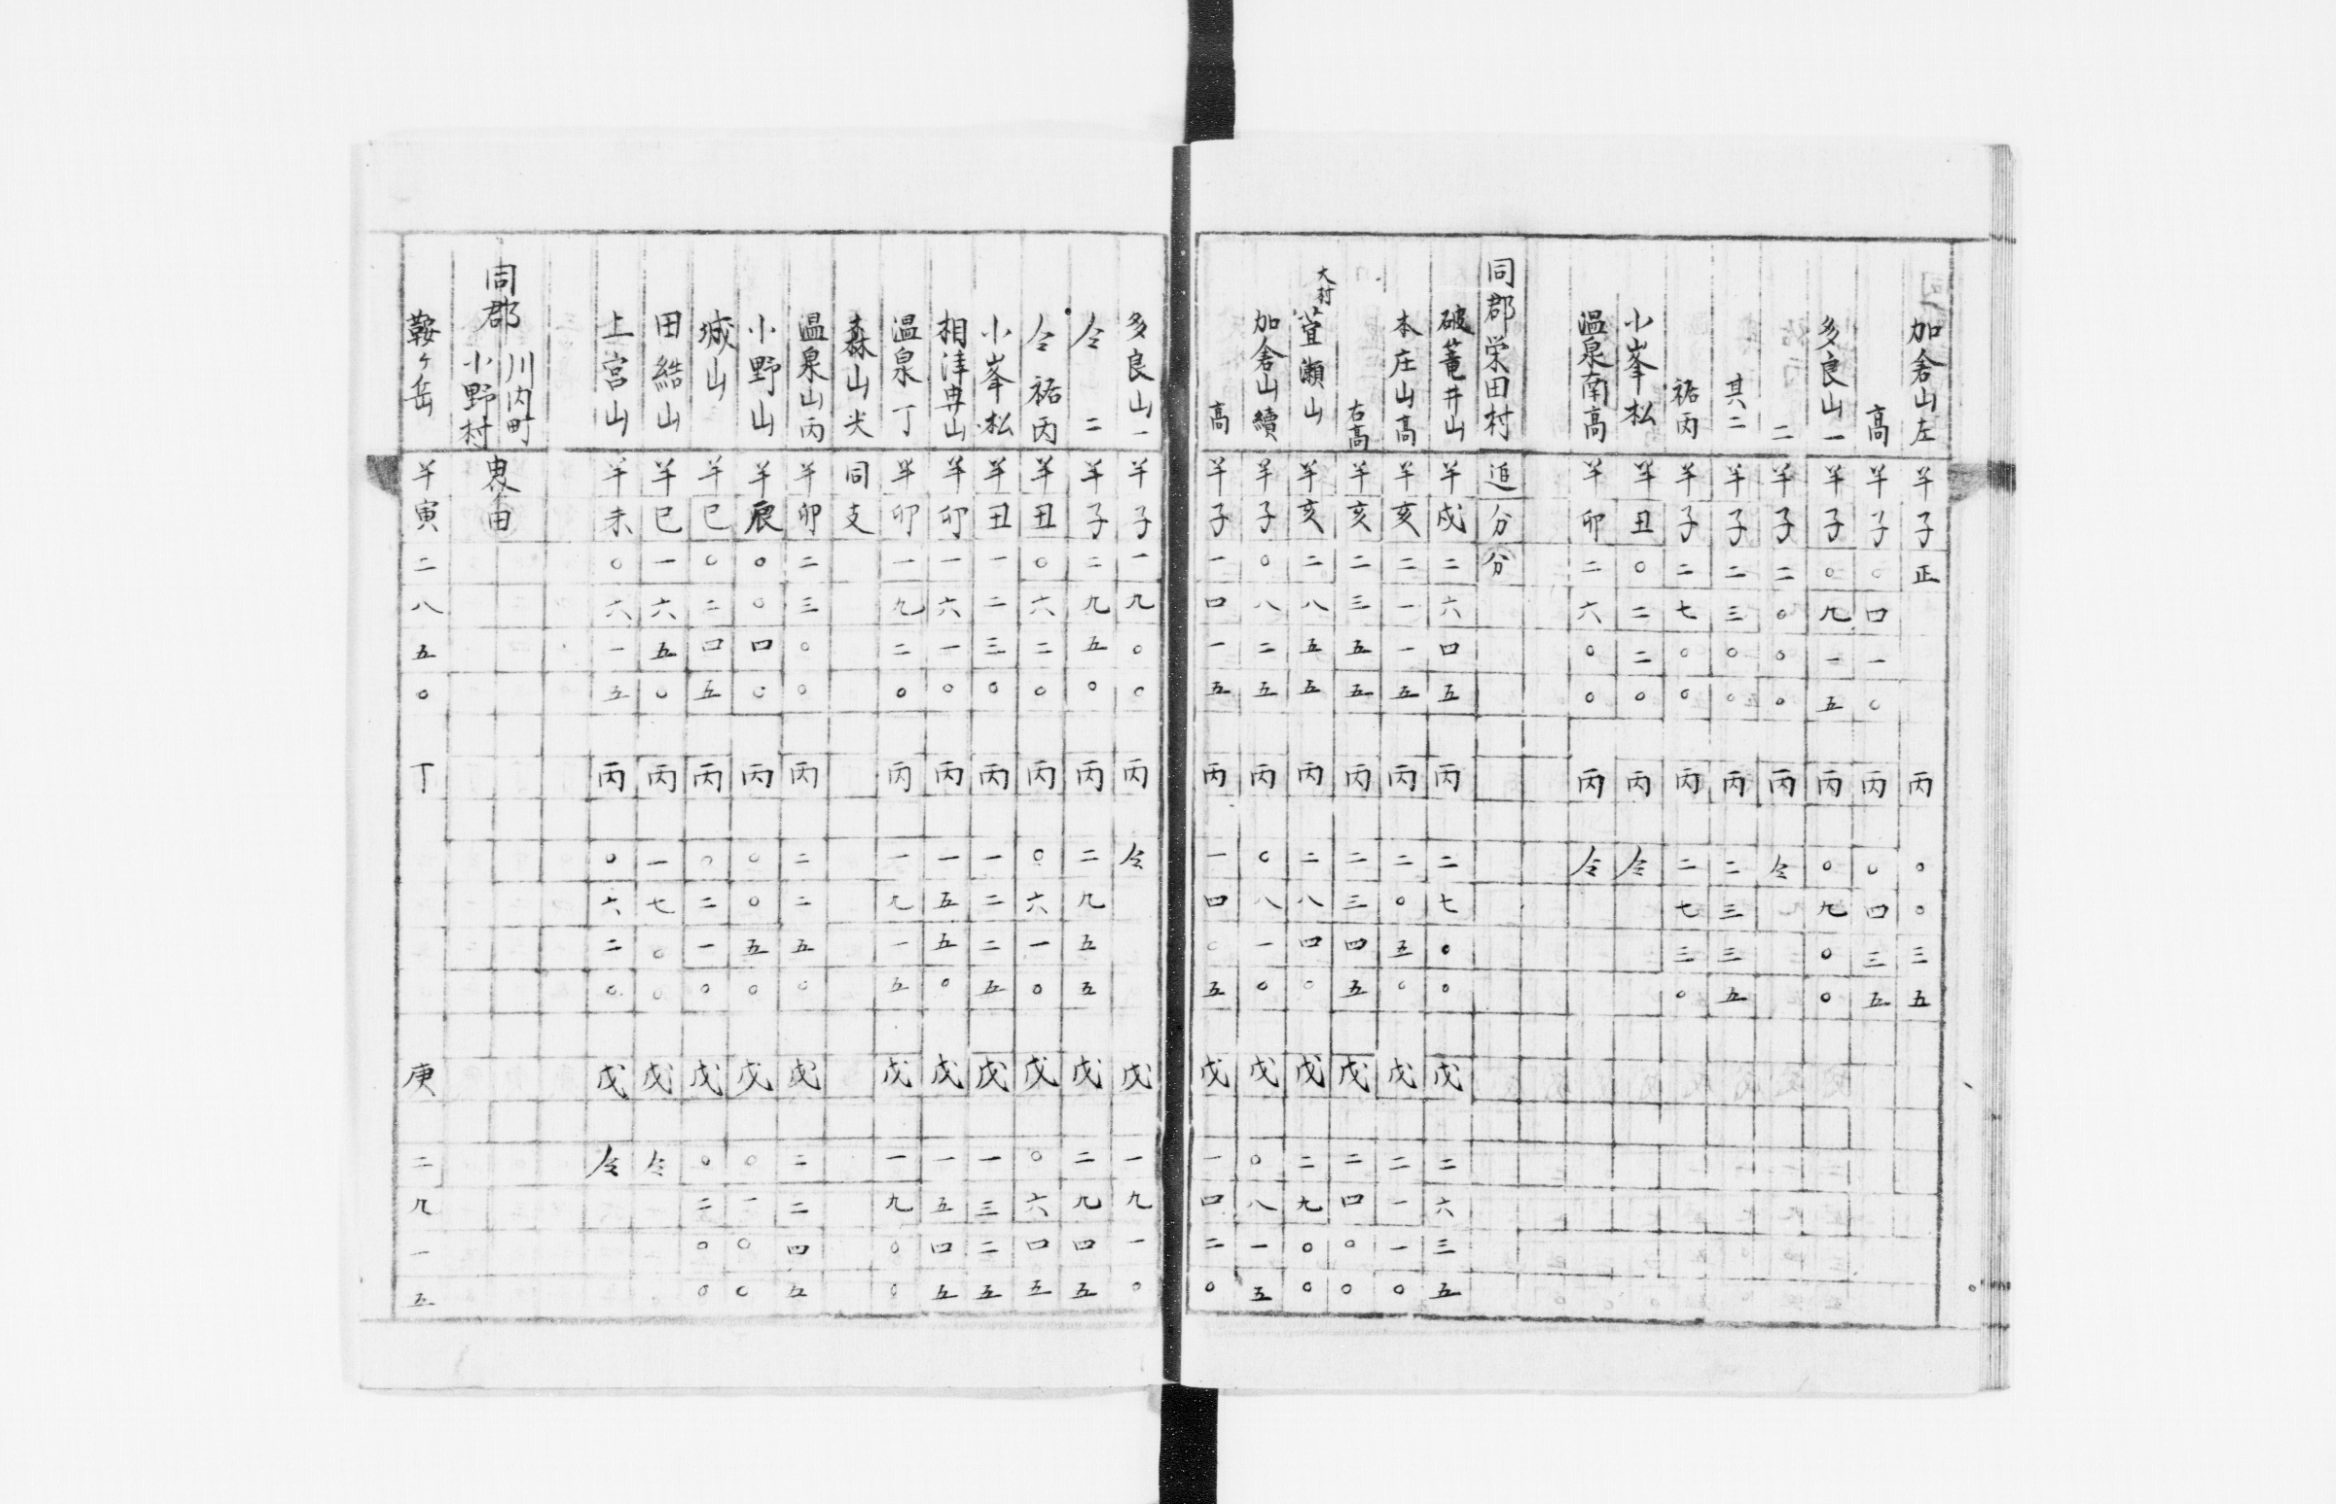 加倉山左 半子正 丙 〇〇三五
高 半子〇四一〇 丙 〇四三五
多良山一 半子〇九一五 丙 〇九〇〇
二 半子二〇〇〇 丙 仝
其二 半子二三〇〇 丙 二三三五
祐丙 半子二七〇〇 丙 二七三〇
小峯松 半丑〇二二〇 丙 仝
温泉南高 半卯二六〇〇 丙 仝
同郡栄田村 追分分
破篭井山 半戌二六四五 丙 二七〇〇 戊 二六三五
本庄山高 半亥二一一五 丙 二〇五〇 戊 二一一〇
右高 半亥二三五五 丙 二三四五 戊 二四〇〇
大村萱瀬山 半亥二八五五 丙 二八四〇 戊 二九〇〇
加倉山續 半子〇八二五 丙 〇八一〇 戊 〇八一五
高 半子一四一五 丙 一四〇五 戊 一四二〇
多良山一 半子一九〇〇 丙 仝 戊 一九一〇
仝二 半子二九五〇 丙 二九五五 戊 二九四五
仝祐丙 半丑〇六二〇 丙 〇六一〇 戊 〇六四五
小峯松 半丑一二三〇 丙 一二二五 戊 一三二五
相津 山 半卯一六一〇 丙 一五五〇 戊 一五四五
温泉丁 半卯一九二〇 丙 一九一五 戊 一九〇〇
森山尖 同支
温泉山丙 半卯二三〇〇 丙 二二五〇 戊 二二四五
小野山 半辰〇〇四〇 丙 〇〇五〇 戊 〇一〇〇
城山 半巳〇二四五 丙 〇二一〇 戊 〇二〇〇
田結山 半巳一六五〇 丙 一七〇〇 戊 仝
上宮山 半未〇六一五 丙 〇六二〇 戊 仝
同郡 川内町
小野村
鞍ヶ岳 半寅二八五〇 丁 庚 二九一五